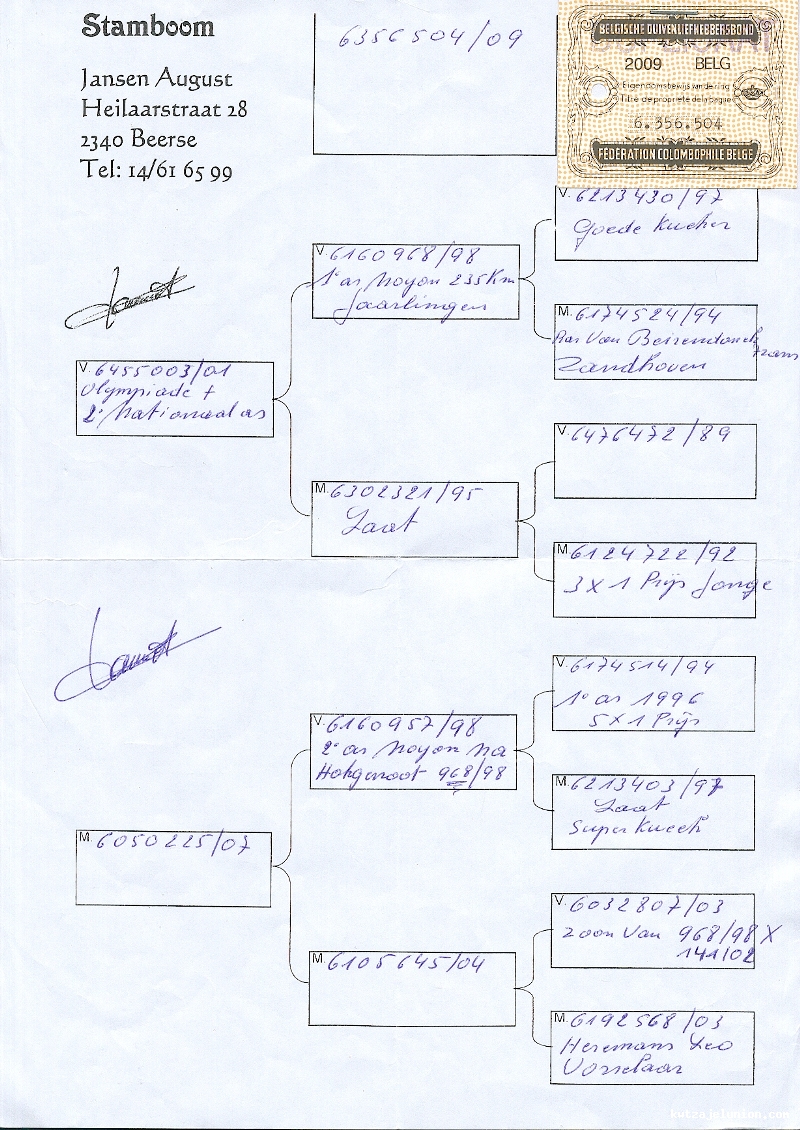 Stamboom
Jansen August
Heilaarstraat 28
2340 Beerse
Tel: 14/61 65 99
6356504/09
BELGISCHE DUIVENLIEFHEBBERSBOND
2009 BELG
Eigendomsbewijs van de ring
Titre de propriété de la bague
6.356.504
FEDERATION COLOMBOPHILE BELGE
V. 6455003/01
Olympiade +
2e Nationaal as
V. 6160968/98
1e as Noyon 235Km
Jaarlingen
V. 6213430/97
Goede Kweker
M. 6174524/94
Van Beirendonck Frans
Zandhoven
M. 6302321/95
Zaat
V. 6476472/89
M. 6124722/92
3 X 1 Prijs Jonge
M. 6050225/07
V. 6160957/98
2e as Noyon Na
Hokgenoot 968/98
V. 6174514/94
1e as 1996
5 X 1 Prijs
M. 6213403/97
Zaat
Super Kweek
M. 6105645/04
V. 6032807/03
Zoon Van 968/98 X
141/02
M. 6192568/03
Heremans Leo
Vorselaar
kutzajelunion.com